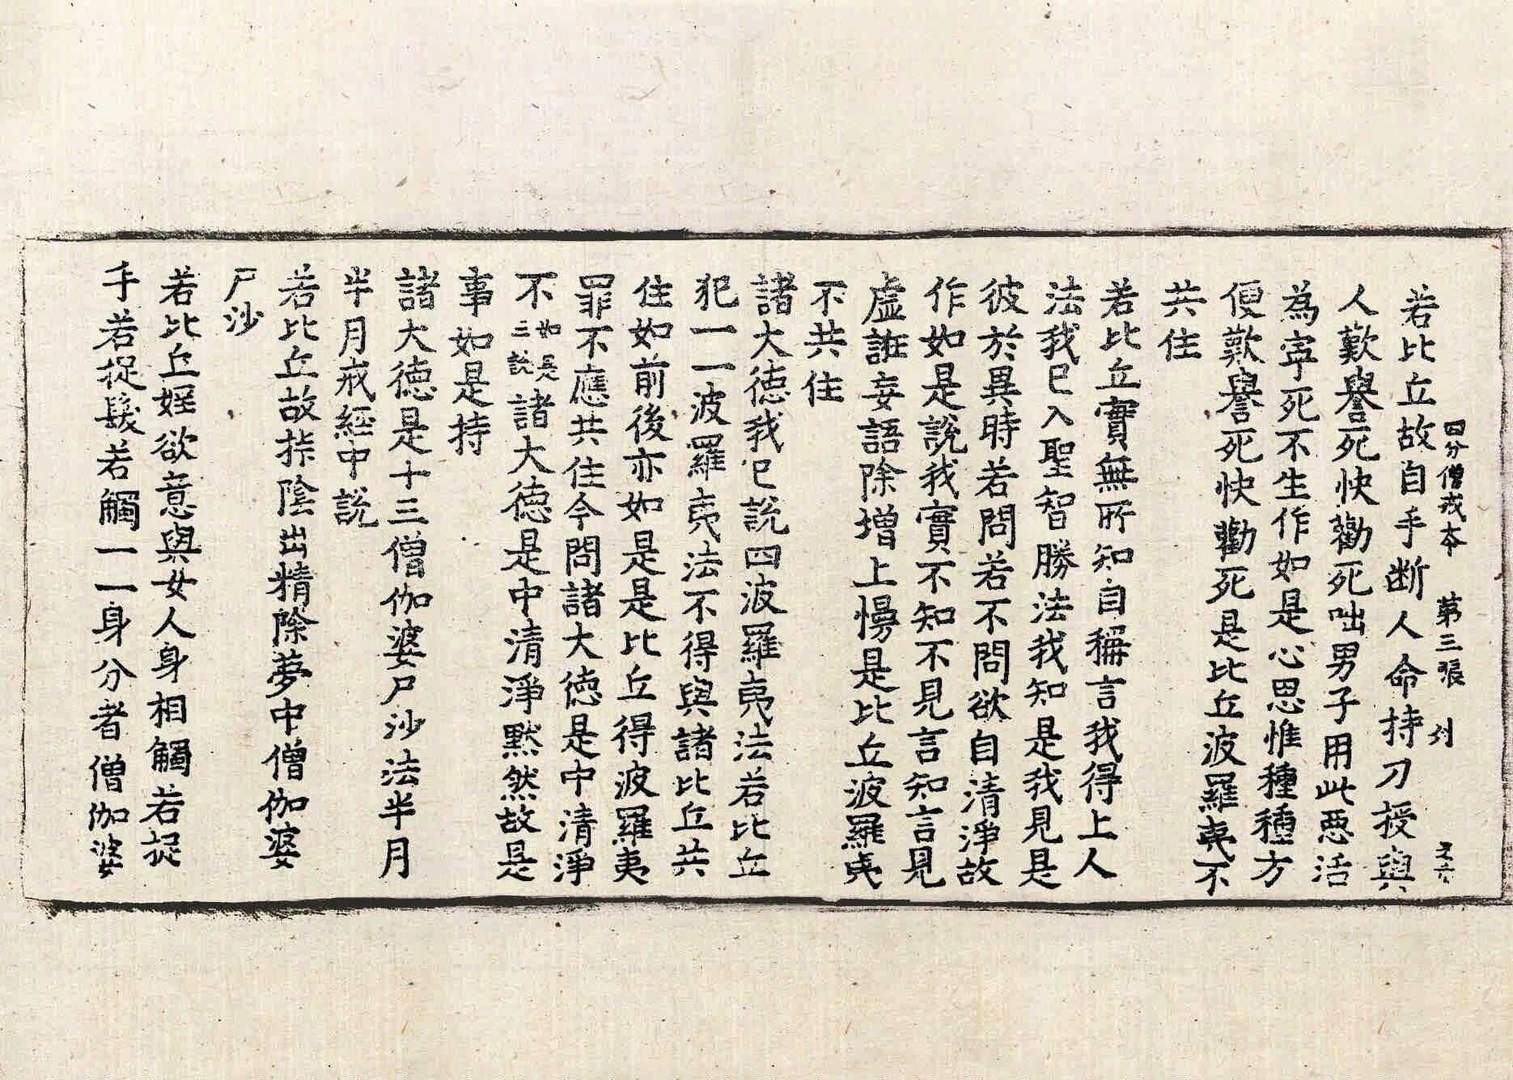 四分僧戒本 第三張 列
若比丘故自手断人命持刀授與
人歎譽死快勸死咄男子用此惡活
為寧死不生作如是心思惟種種方
便歎譽死快勸死是比丘波羅夷不
共住
若比丘實無所知自稱言我得上人
法我已入聖智勝法我知是我見是
彼於異時若問若不問欲自清淨故
作如是說我實不知不見言知言見
虛誑妄語除增上慢是比丘波羅夷
不共住
諸大德我已說四波羅夷法若比丘
犯一一波羅夷法不得與諸比丘共
住如前後亦如是是比丘得波羅夷
罪不應共住今問諸大德是中清淨
不如是三說諸大德是中清淨黙然故是
事如是持
諸大德是十三僧伽婆尸沙法半月
半月戒經中說
若比丘故捺陰出精除夢中僧伽婆
尸沙
若比丘婬欲意與女人身相觸若捉
手若捉髮若觸一一身分者僧伽婆